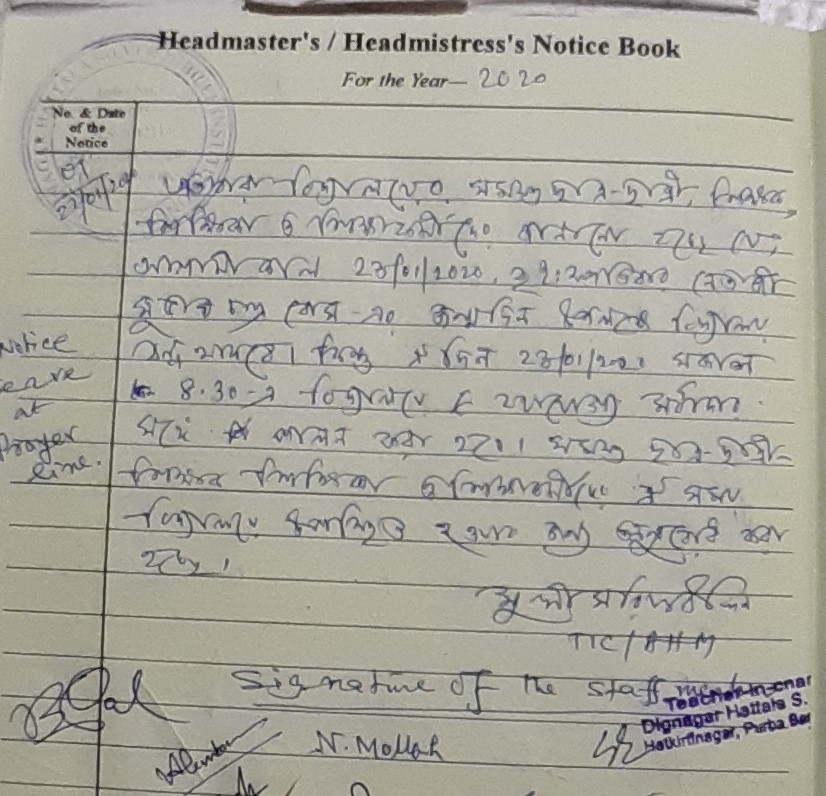 Headmaster's / Headmistress's Notice Book
For the Year— 2020
No. & Date
of the
Notice
01
22/01/20
বিদ্যালয়ের সমস্ত ছাত্র-ছাত্রী, শিক্ষক,
শিক্ষিকা ও শিক্ষাকর্মীদের জানানো হচ্ছে যে,
আগামী কাল 23/01/2020, বৃহঃস্পতিবার নেতাজী
সুভাষ চন্দ্র বোস-এর জন্মদিন উপলক্ষে বিদ্যালয়
বন্ধ থাকবে। কিন্তু ঐ দিন 23/01/2020 সকাল
8.30-এ বিদ্যালয়ে যথাযোগ্য মর্যাদার
সহিত পালন করা হবে। সমস্ত ছাত্র-ছাত্রী
শিক্ষক শিক্ষিকা ও শিক্ষাকর্মীদের ঐ সময়
বিদ্যালয়ে উপস্থিত হওয়ার জন্য অনুরোধ করা
হচ্ছে।
Notice
at
Prayer
time.
TIC / AHM
Signature of the staff
Teacher-In-char
Dignagar Hattala S.
Hatkirtinagar, Purba Bar
N. Mollah